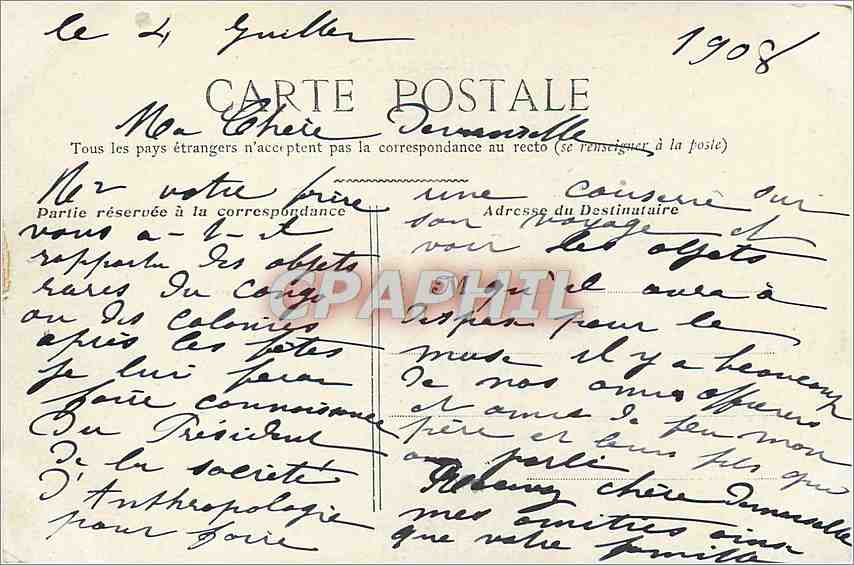 le 4 Juillet 1908
CARTE POSTALE
Ma Chère Demoiselle
Tous les pays étrangers n'acceptent pas la correspondance au recto (se renseigner à la poste)
Partie réservée à la correspondance
Mr votre frère
vous a-t-il
rapporté des objets
rares du Congo
ou des colonies
après les fêtes
je lui ferai
faire connaissance
du Président
de la société
d'Anthropologie
pour faire
Adresse du Destinataire
une sur
son voyage et
voir les objets
M
qu'il aura à
pour le
musé il y a beaucoup
de nos amis officiers
et amis de feu mon
père et leurs fils que
parlé
Recevez chère demoiselle
mes amitiés ainsi
que votre famille
CPAPHIL